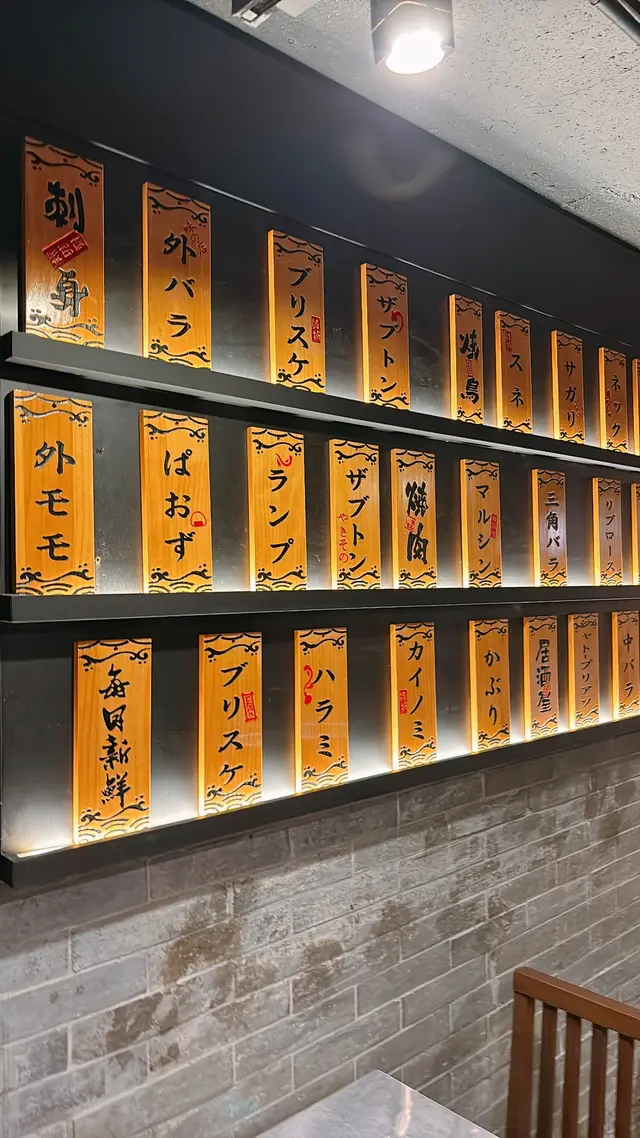 刺身
外バラ
ブリスケ
ザブトン
焼鳥
スネ
サガリ
ネック
外モモ
ぱおず
ランプ
ザブトン
やきその
焼肉
マルシン
三角バラ
リブロース
毎日新鮮
ブリスケ
ハラミ
カイノミ
かぶり
居酒屋
ャトーブリアン
中バラ